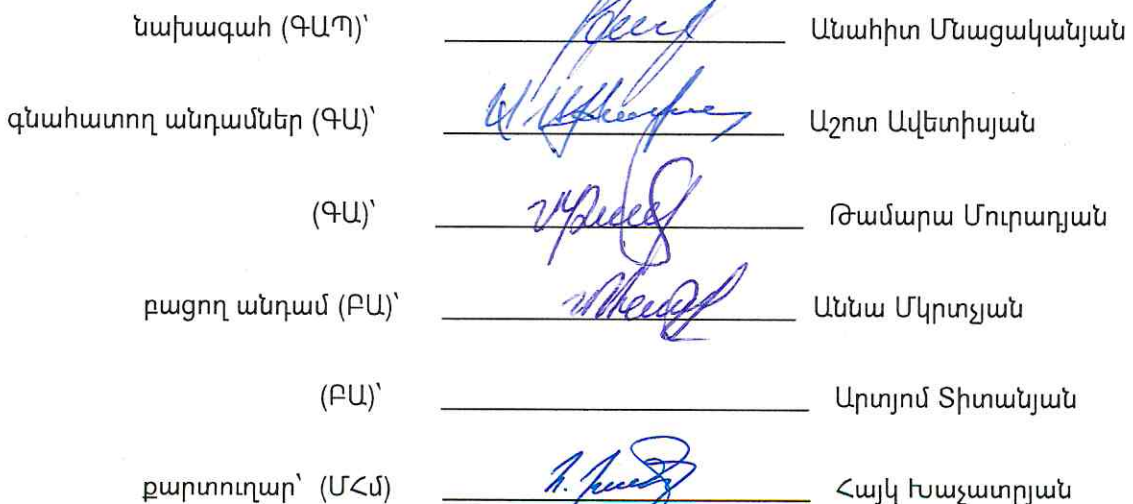 նախագահ (ԳԱՊ)՝ Անահիտ Մնացականյան
գնահատող անդամներ (ԳԱ)՝ Աշոտ Ավետիսյան
(ԳԱ)՝ Թամարա Մուրադյան
բացող անդամ (ԲԱ)՝ Աննա Մկրտչյան
(ԲԱ)՝ Արտյոմ Տիտանյան
քարտուղար՝ (ՄՀմ) Հայկ Խաչատրյան